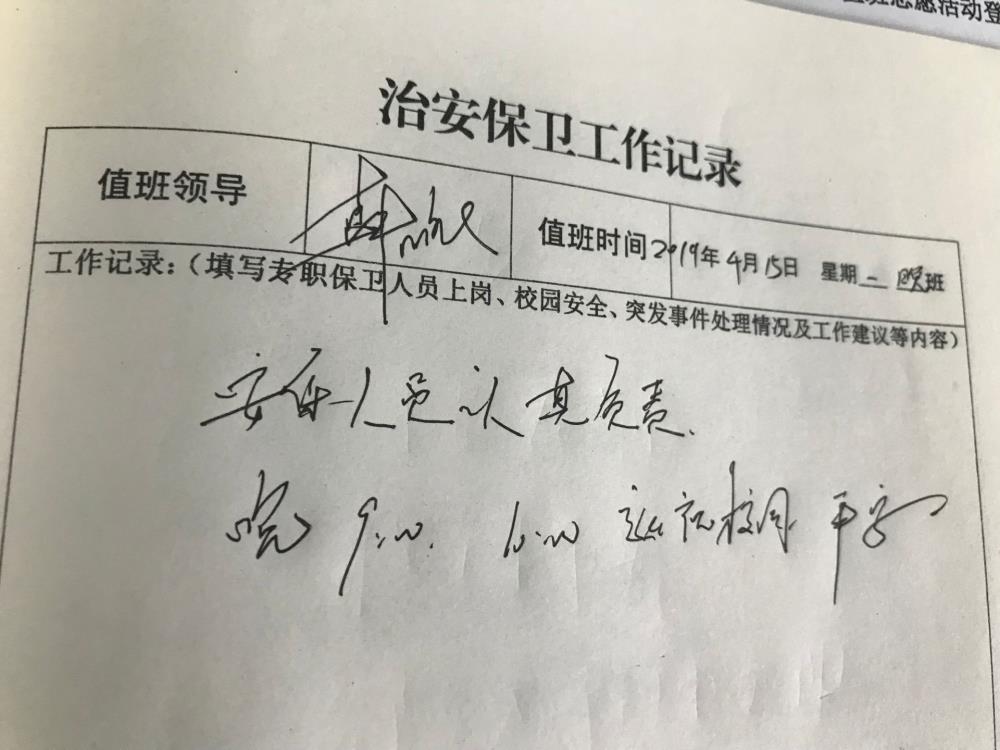 班志愿活动登
治安保卫工作记录
值班领导 值班时间 2019年4月15日 星期一 晚班
工作记录：（填写专职保卫人员上岗、校园安全、突发事件处理情况及工作建议等内容）
安保人员认真负责.
晚 9:00. 10:00 巡视校园 平安